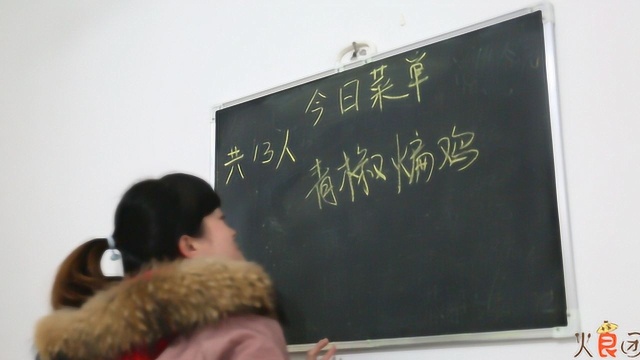 今日菜单
共13人
青椒煸鸡
火食团